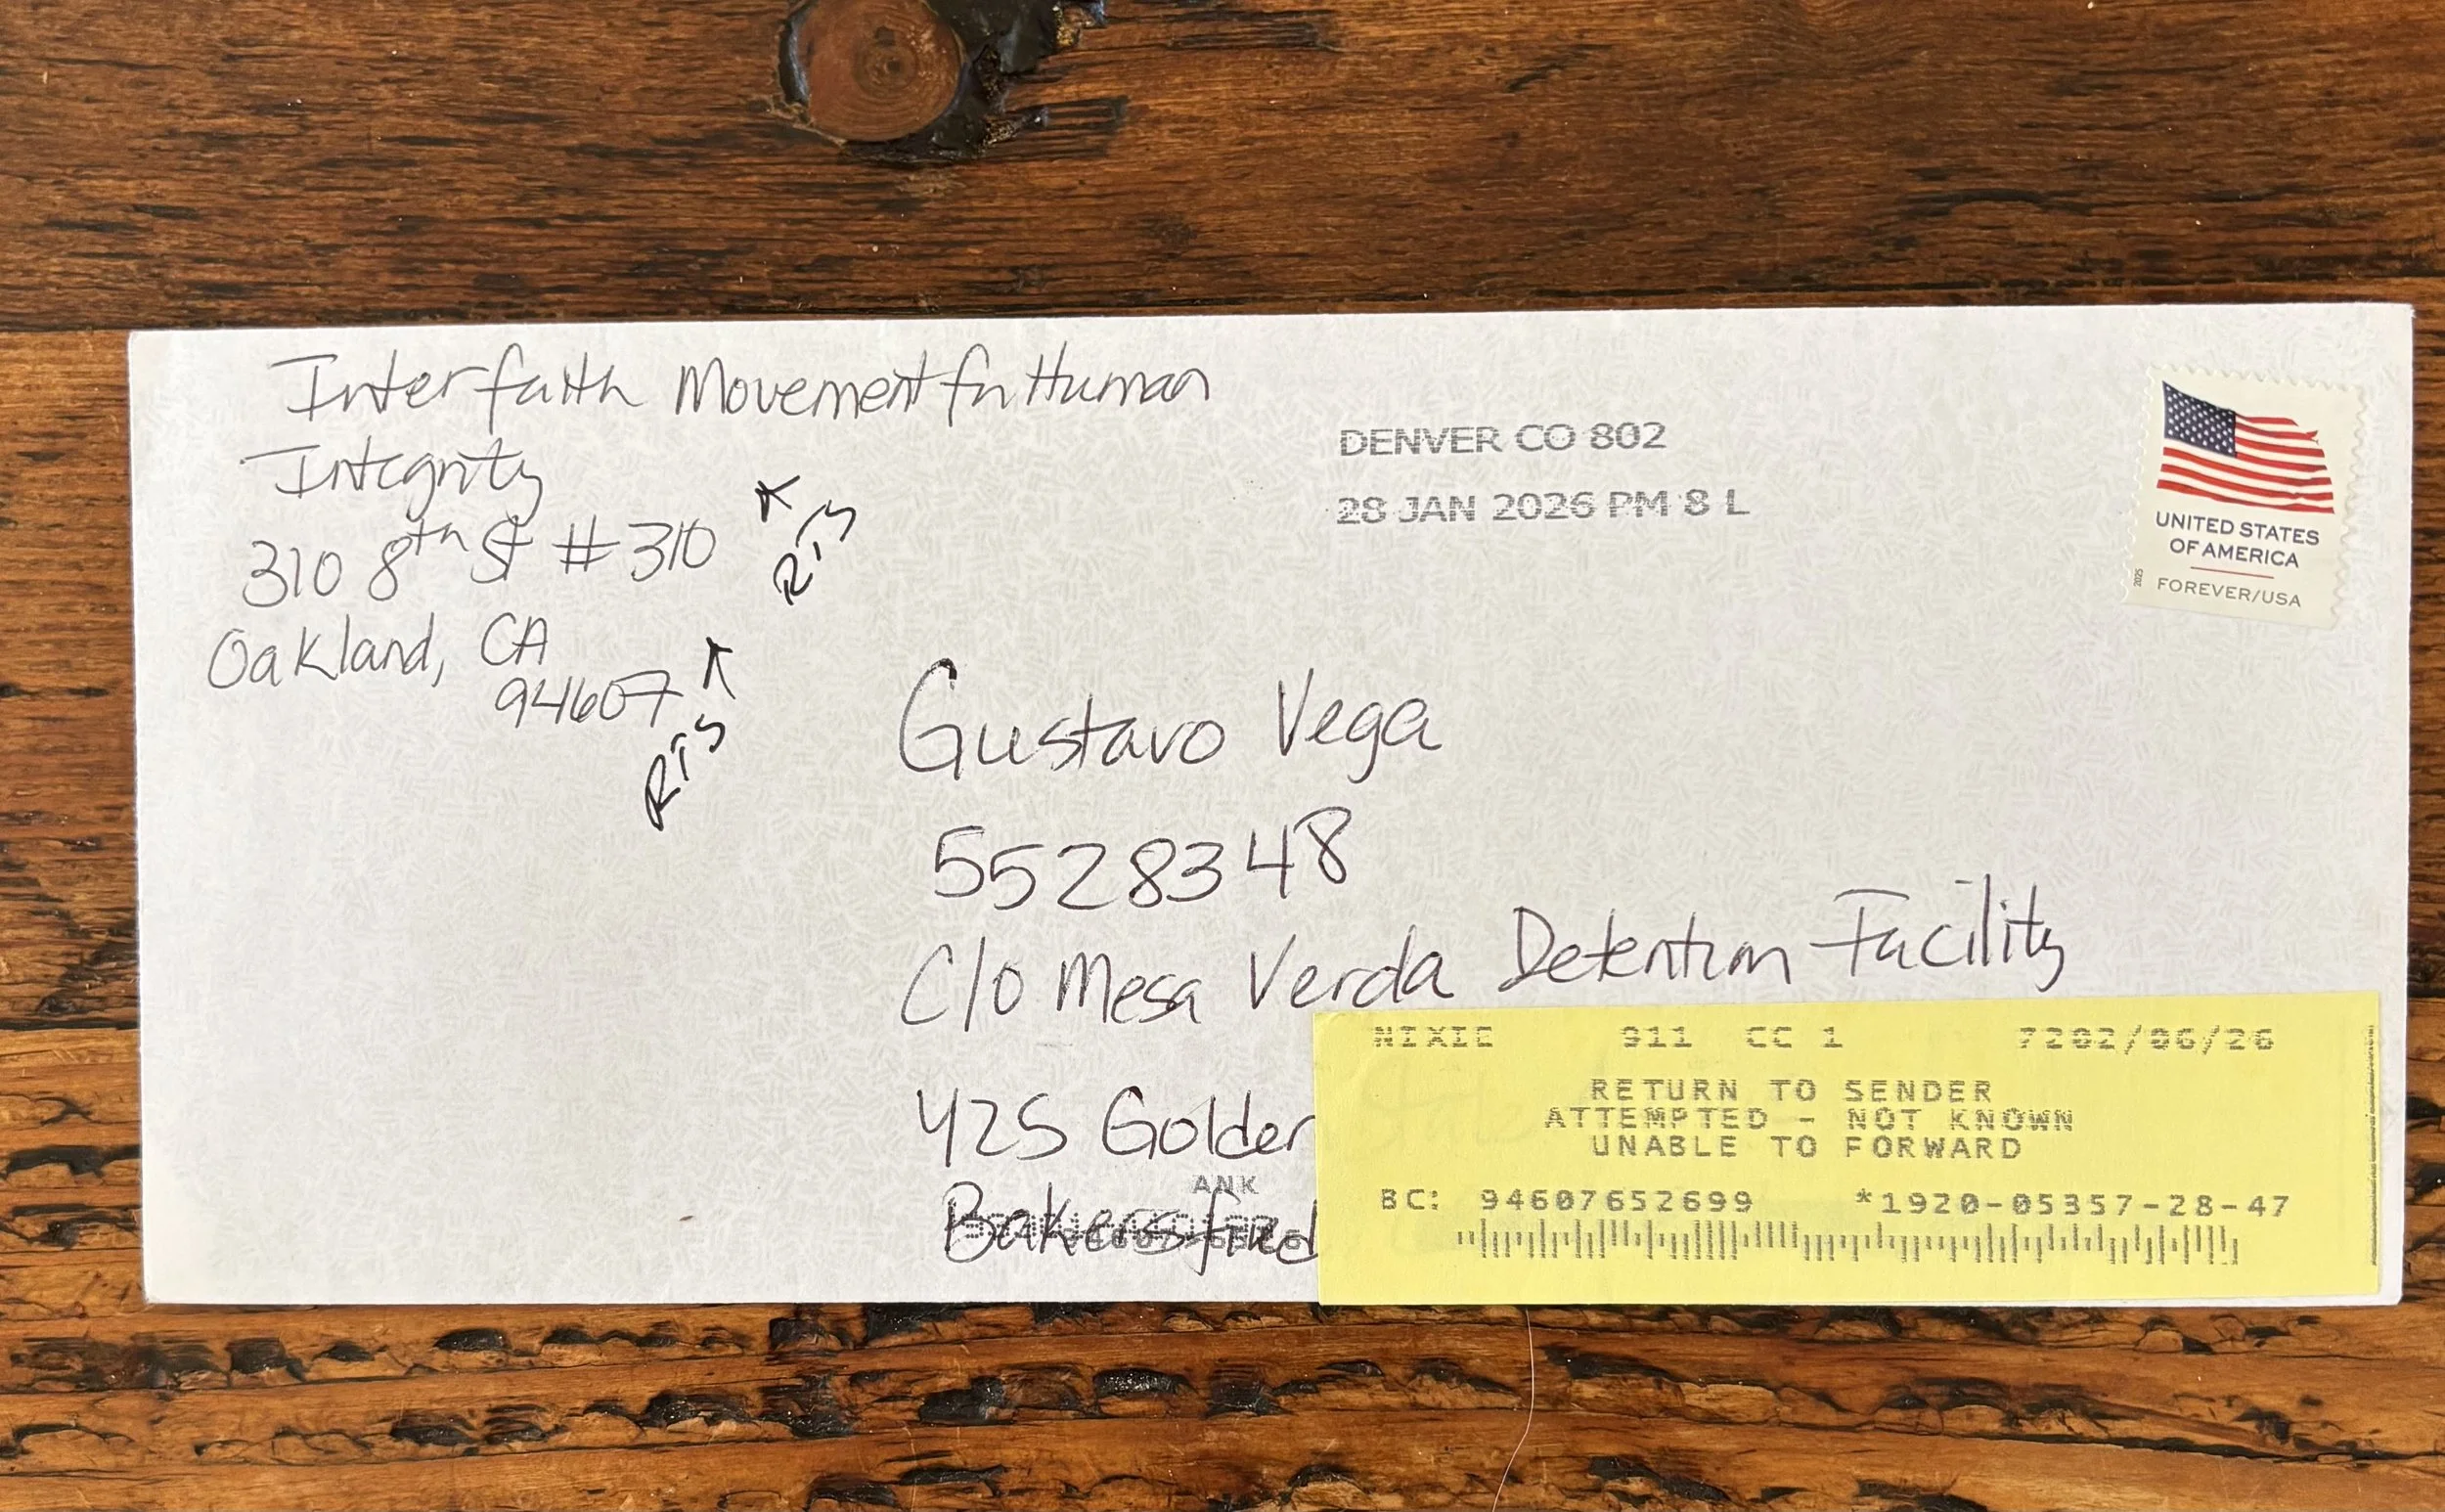 Interfaith Movement for Human
Integrity
310 8th St #310
Oakland, CA
94607
RTS
RTS
DENVER CO 802
28 JAN 2026 PM 8 L
UNITED STATES
OF AMERICA
FOREVER/USA
2025
Gustavo Vega
5528348
C/O Mesa Verda Detention Facility
425 Golden
Bakersfield
ANK
NIXIE 911 CC 1 7202/06/26
RETURN TO SENDER
ATTEMPTED - NOT KNOWN
UNABLE TO FORWARD
BC: 94607652699 *1920-05357-28-47